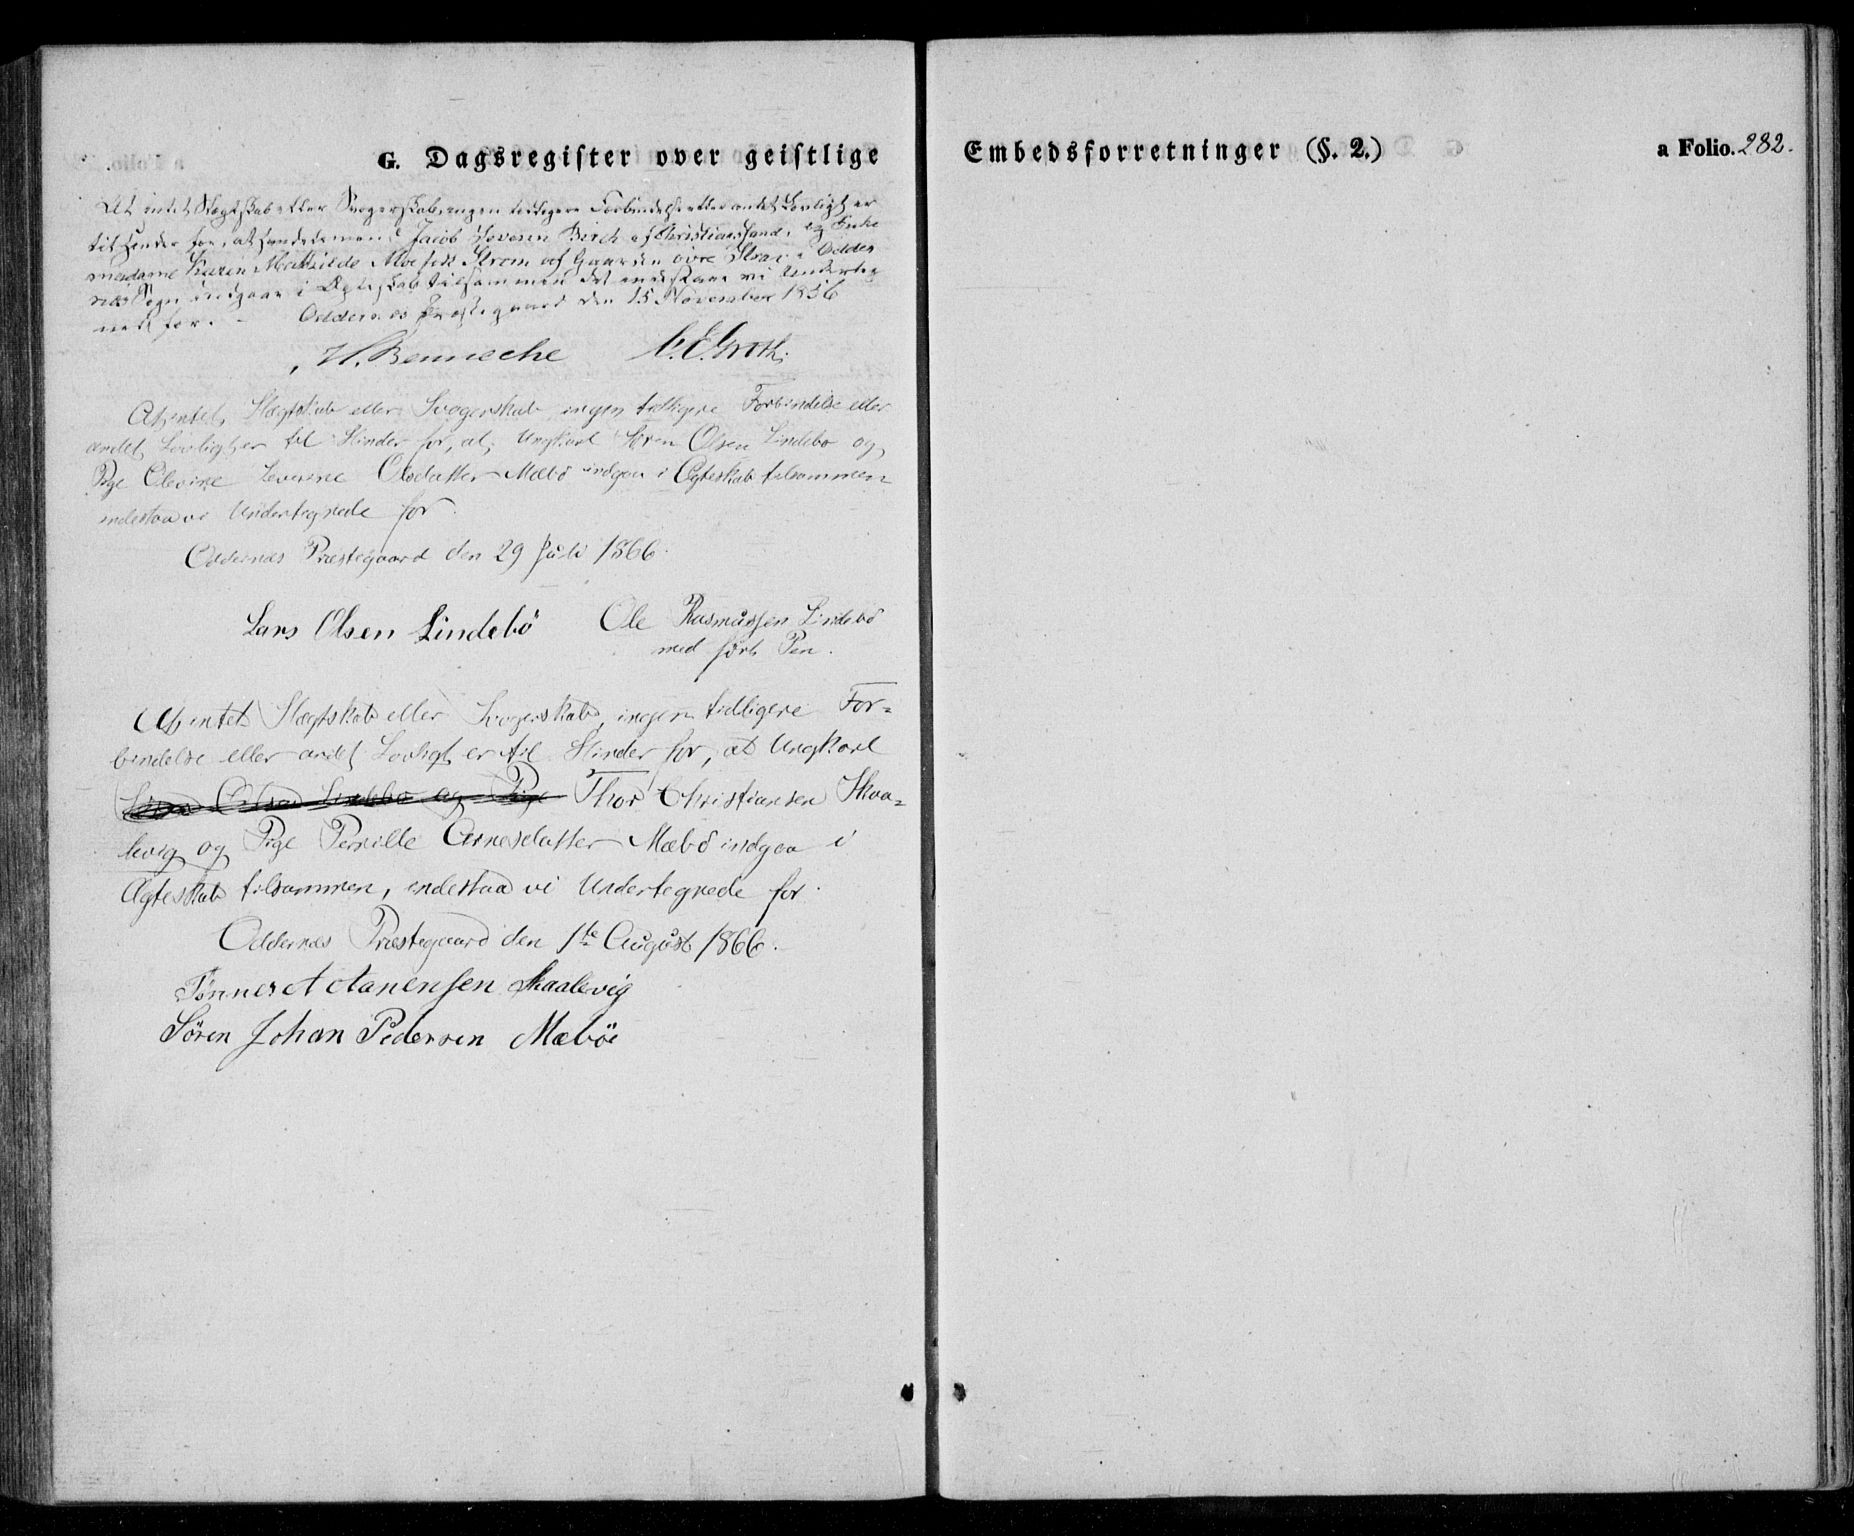 G. Dagsregister over geistlige
Embedsforretninger (§. 2.)
a Folio. 282.
At intet Slægtskab eller Svogerskab, ingen tidligere Forbindelse eller andet Lovligt er
til Hinder for, at Handelsmand Jacob Severin Birch af Christianssand, og Enke
madame Karen Mathilde Moe født Strøm af Gaarden øvre Strai i Odder
næs Sogn indgaar i Ægteskab tilsammen det indestaae vi Underteg
nede for. - Oddernes Præstegaard den 15 November 1856
H. Benneche C. E. Groth
At intet Slægtskab eller Svogerskab, ingen tidligere Forbindelse eller
andet Lovligt er til Hinder for, at, Ungkarl Søren Olsen Lindebø og
Pige Olevine Severine Olsdatter Mæbø indgaa i Ægteskab tilsammen
indestaa vi Undertegnede for
Oddernæs Præstegaard den 29 Juli 1866.
Lars Olsen Lindebö Ole Rasmussen Lindebö
med ført Pen.
At intet Slægtskab eller Svogerskab, ingen tidligere For-
bindelse eller andet Lovligt er til Hinder for, at Ungkarl
Søren Olsen Lindebø og Pige Thor Christiansen Skaa-
levig og Pige Pernille Arnesdatter Mæbö indgaa i
Ægteskab tilsammen, indestaa vi Undertegnede for.
Oddernæs Præstegaard den 1te August 1866.
Tönnes Skaalevig
Sören Johan Pedersen Mæböe